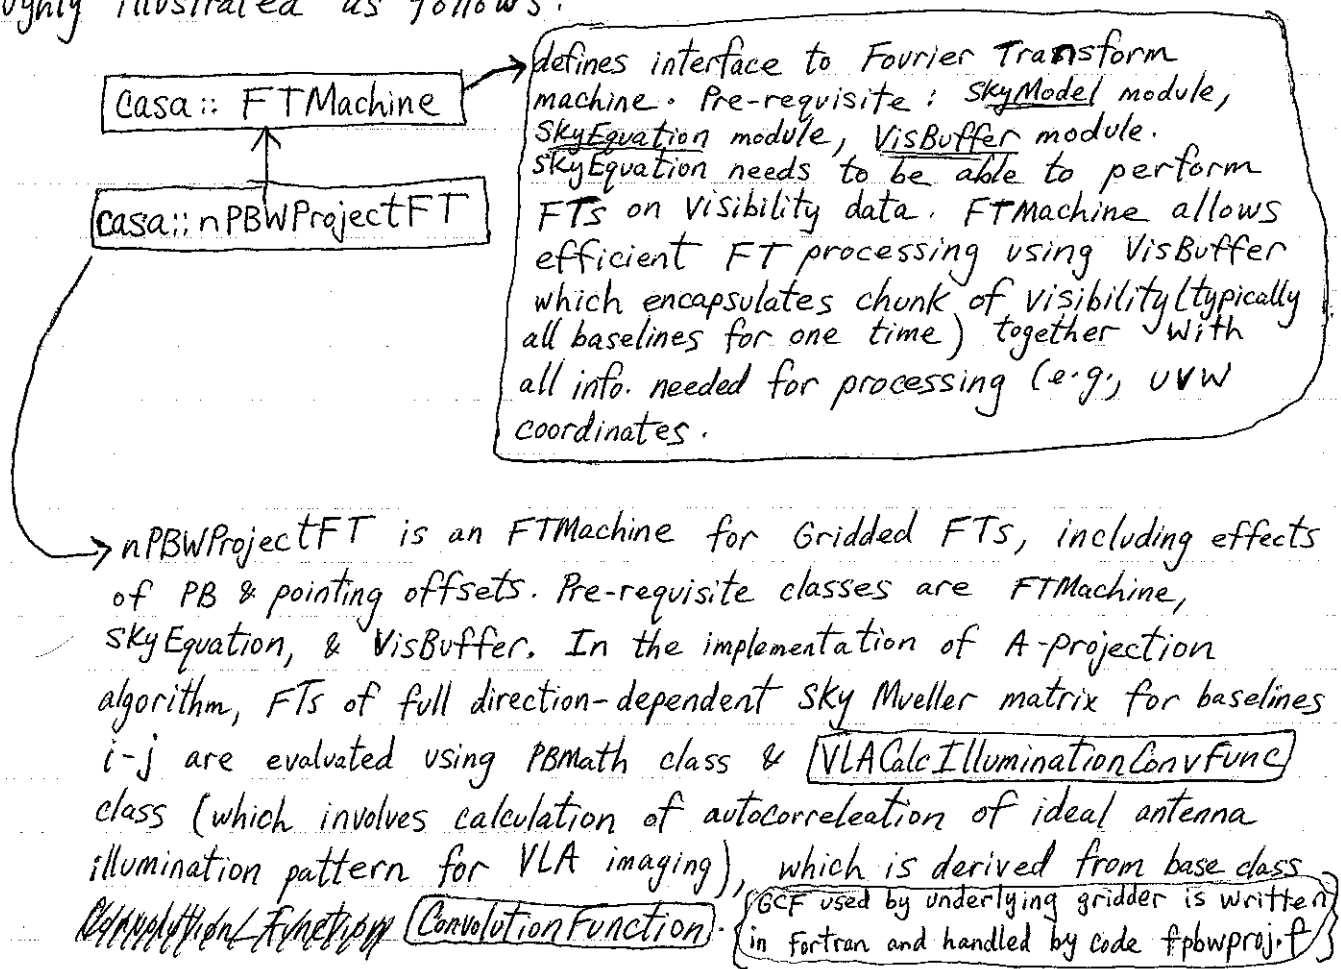 roughly illustrated as follows:
casa:: FTMachine
casa::nPBWProjectFT
defines interface to Fourier Transform
machine. Pre-requisite: SkyModel module,
SkyEquation module, VisBuffer module.
SkyEquation needs to be able to perform
FTs on visibility data. FTMachine allows
efficient FT processing using VisBuffer
which encapsulates chunk of visibility (typically
all baselines for one time) together with
all info. needed for processing (e.g., UVW
coordinates.
nPBWProjectFT is an FTMachine for Gridded FTs, including effects
of PB & pointing offsets. Pre-requisite classes are FTMachine,
SkyEquation, & VisBuffer. In the implementation of A-projection
algorithm, FTs of full direction-dependent Sky Mueller matrix for baselines
i-j are evaluated using PBMath class & VLACalcIlluminationConvFunc
class (which involves calculation of autocorreleation of ideal antenna
illumination pattern for VLA imaging), which is derived from base class
ConvolutionFunction. {GCF used by underlying gridder is written
in Fortran and handled by code fpbwproj.f}